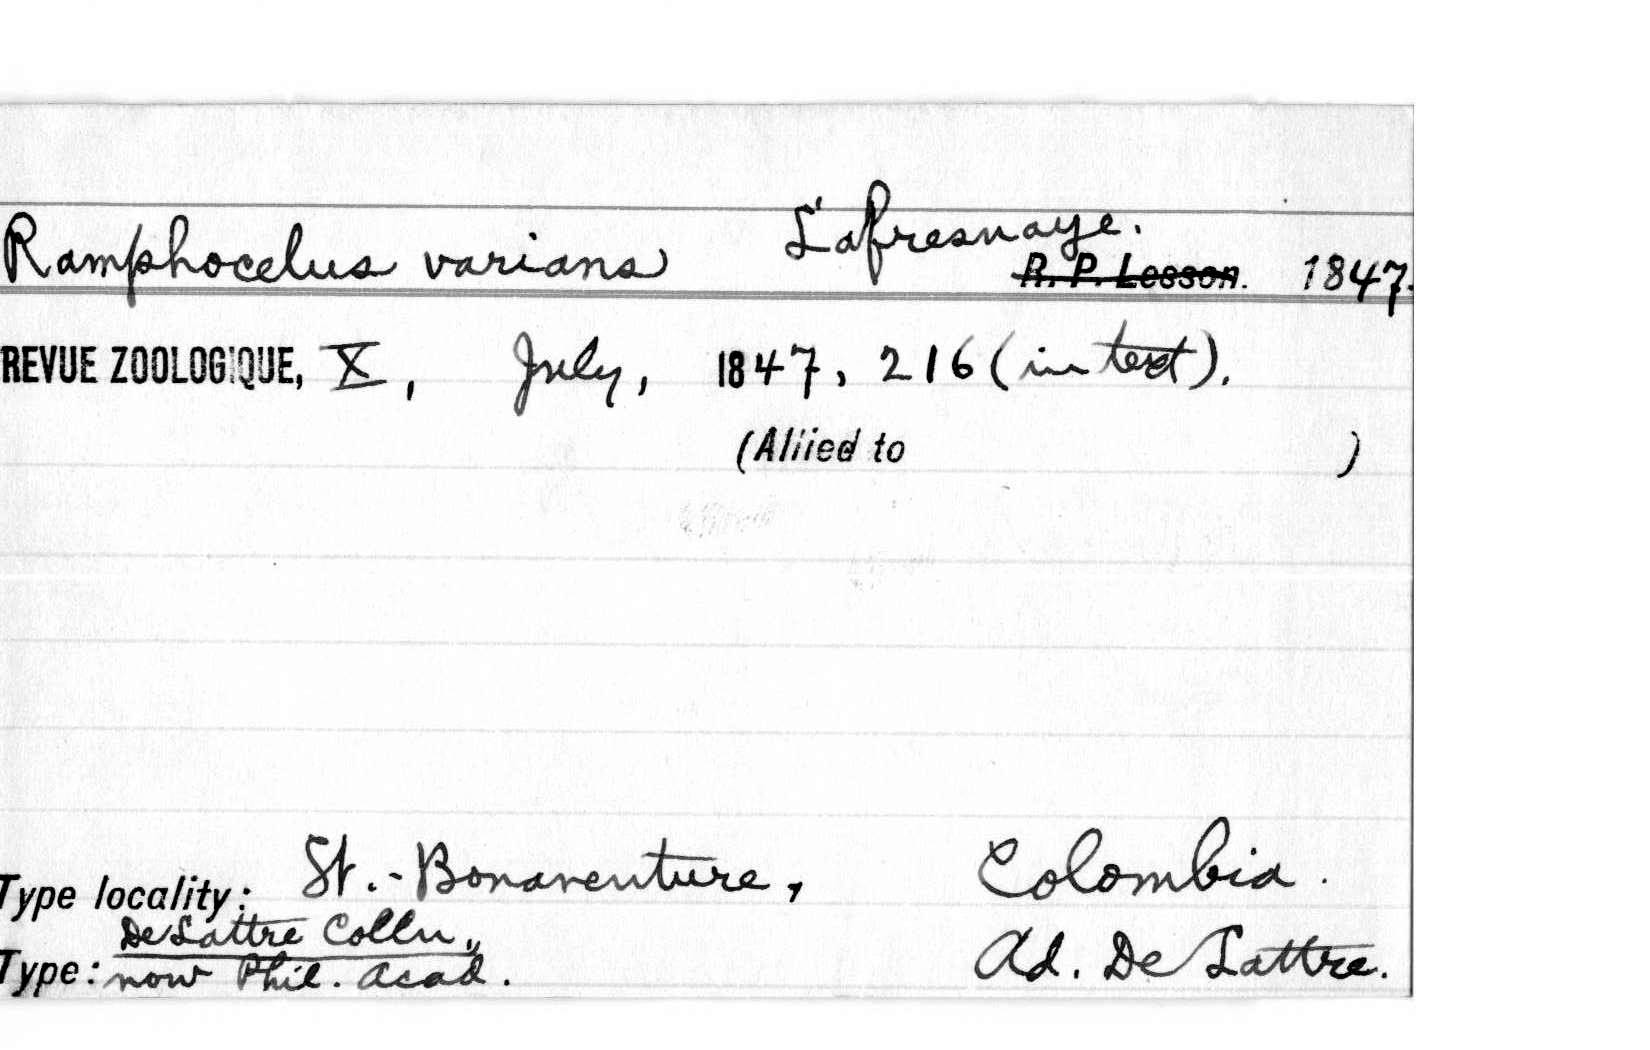 Ramphocelus varians Lafresnaye.
R. P. Lesson. 1847.
REVUE ZOOLOGIQUE, X, July, 1847, 216 (in text).
(Allied to )
Type locality: St.-Bonaventure, Colombia.
De Lattre Colln.,
Type: now Phil. Acad. Ad. De Lattre.